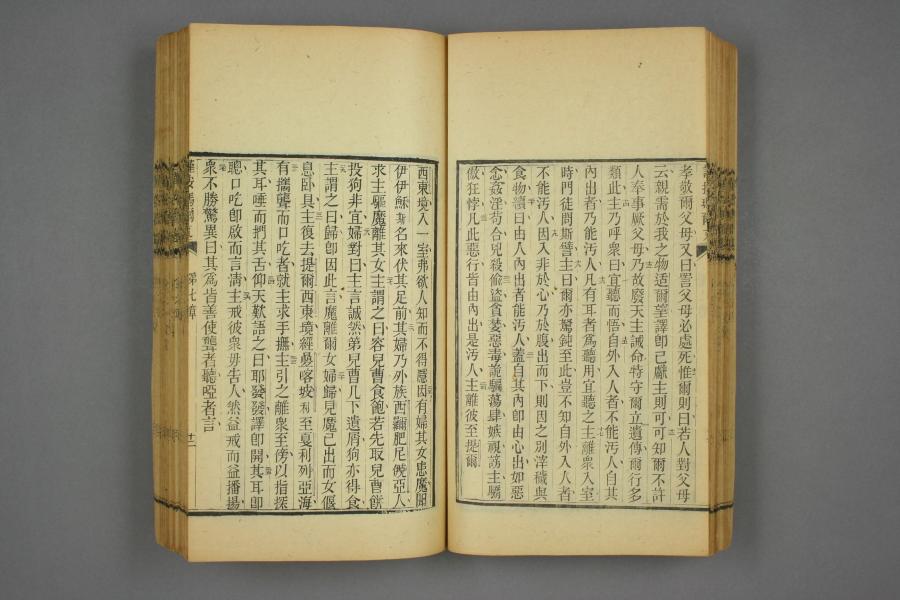 孝敬爾父母又曰詈父母必處死惟爾則曰若人對父母
云親需於我之物适爾譯即已獻主則可可知爾不許
人奉事厥父母乃故廢天主誡命特守爾立遺傳爾行多
類此主乃呼衆曰宜聽而悟自外入人者不能汚人自其
內出者乃能汚人凡有耳者爲聽用宜聽之主離衆入室
時門徒問斯譬主曰爾亦駑鈍至此豈不知自外入人者
不能汚人因入非於心乃於腹出而下則因之別滓穢與
食物續曰由人內出者能汚人蓋自其內卽由心出如惡
念姦淫苟合兇殺偸盜貪婪惡毒詭騙蕩肆嫉視謗主驕
傲狂悖凡此惡行皆由內出是汚人主離彼至提爾
西東境入一室弗欲人知而不得隱因有婦其女患魔聞
伊伊穌斯名來伏其足前其婦乃外族西爾肥尼僥亞人
求主驅魔離其女主謂之曰容兒曹食飽若先取兒曹餅
投狗非宜婦對曰主言誠然第兒曹几下遺屑狗亦得食
主謂之曰歸卽因此言魔離爾女婦歸見魔已出而女偃
息卧具主復去提爾西東境經喀坡利至戛利列亞海
有攜聾而口吃者就主求手撫主引之離衆至傍以指探
其耳唾而捫其舌仰天歎語之曰耶發發譯卽開其耳卽
聰口吃卽啟而言淸主戒彼衆毋告人然益戒而益播揚
衆不勝驚異曰其爲皆善使聾者聽啞者言